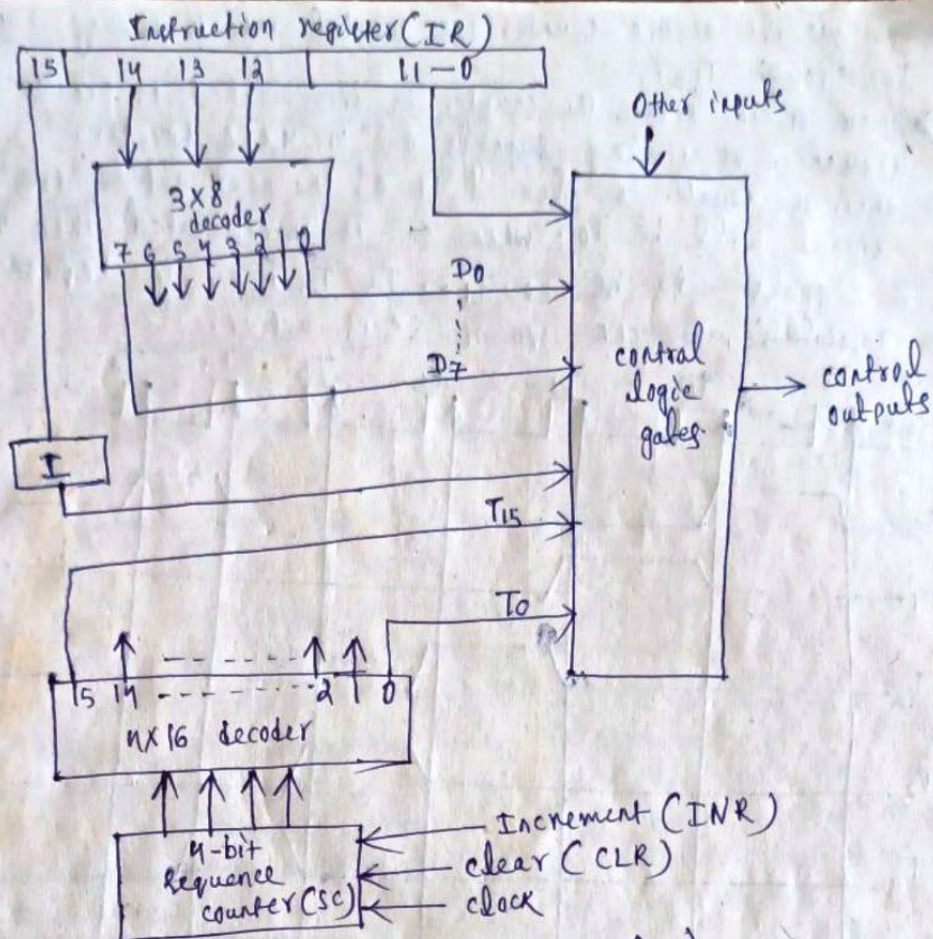 Instruction register (IR)
15 14 13 12 11-0
Other inputs
3X8
decoder
7 6 5 4 3 2 1 0
D0
D7
control
logic
gates
control
outputs
I
T15
T0
15 14 ---- 2 1 0
4X16 decoder
4-bit
Sequence
counter (SC)
Increment (INR)
clear (CLR)
clock